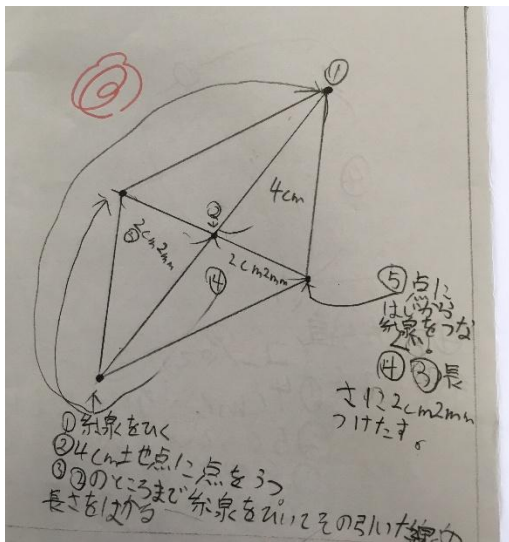 ①
4cm
②
2cm2mm
③
2cm2mm
⑭
⑤点に
はじから
線をつな
ぐ!
④③長
さに2cm2mm
つけたす。
①線をひく
②4cm地点に点をうつ
③②のところまで線をひいてその引いた線の
長さをはかる